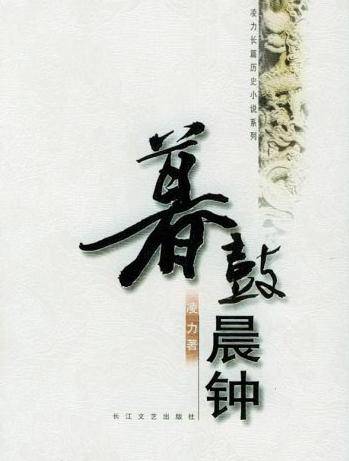 凌力长篇历史小说系列
暮鼓
晨钟
凌力著
长江文艺出版社